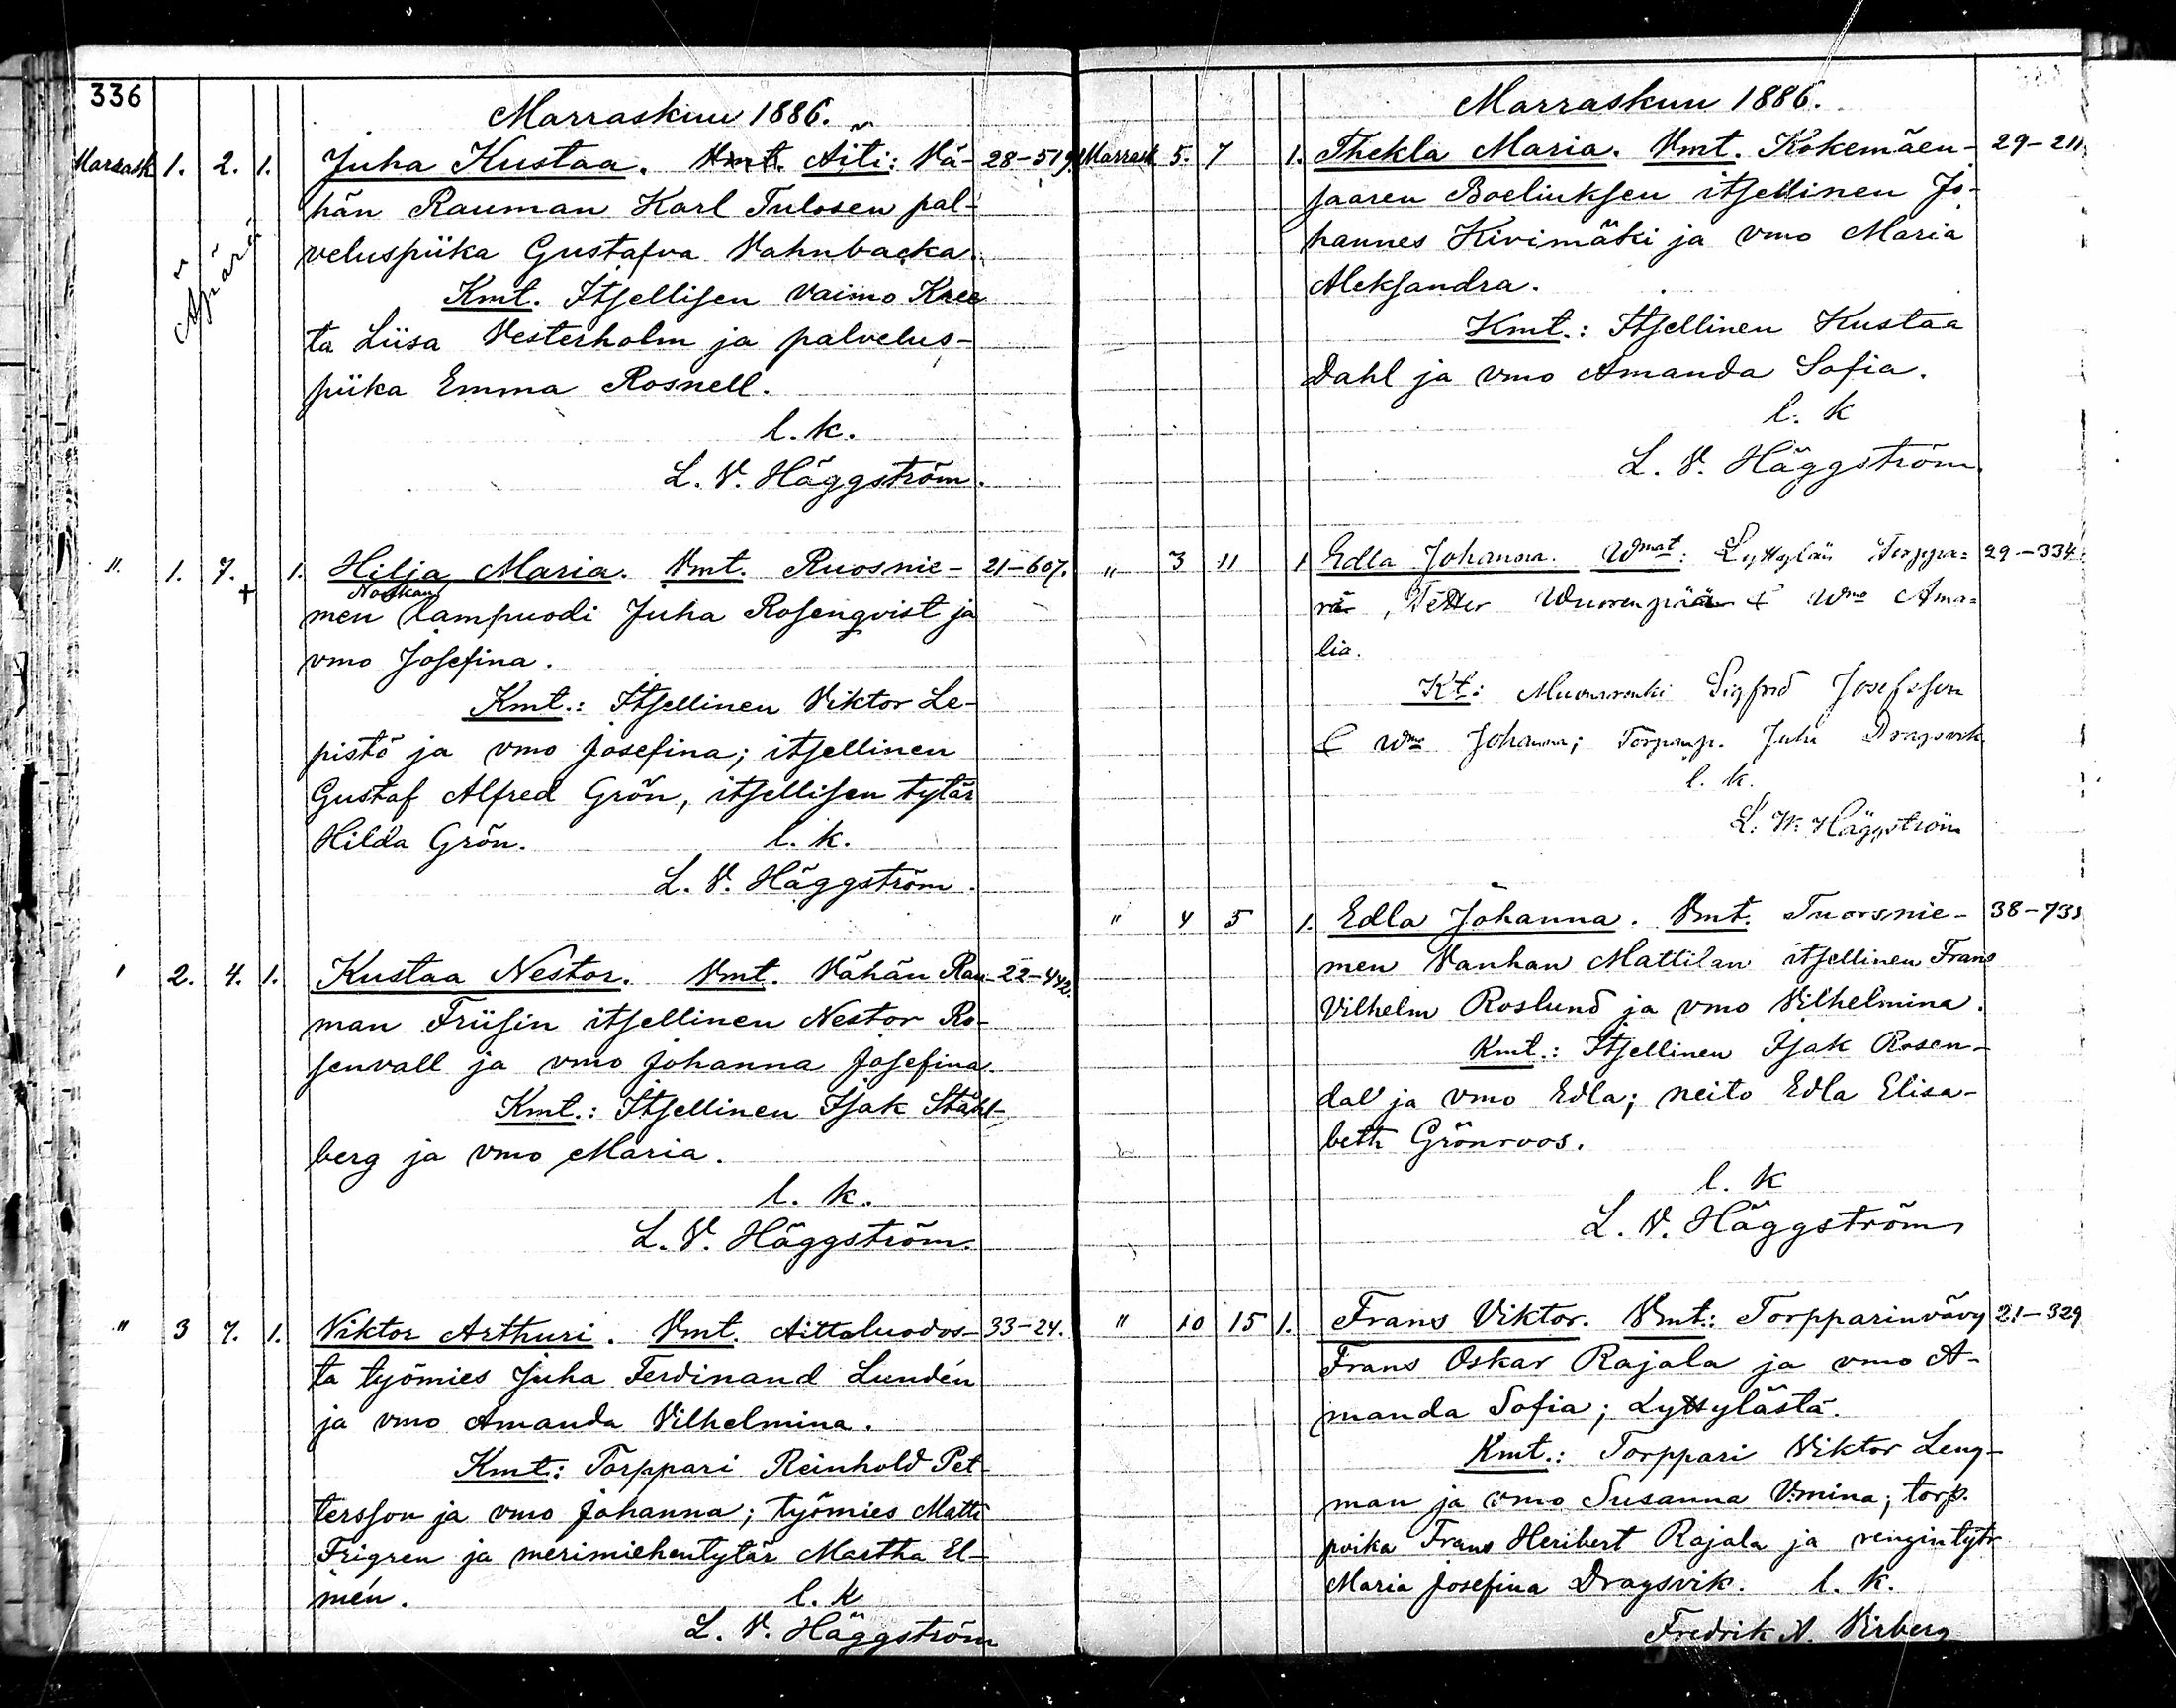 336
Marraskuu 1886.
Marrask 1. 2. 1. Juha Kustaa. Vmt. Äiti: Vä- 28-519.
Äpärä
hän Rauman Karl Tulosen pal-
veluspiika Gustafva Vahnbacka.
Kmt. Itsellisen vaimo Kree
ta Liisa Vesterholm ja palvelus-
piika Emma Rosnell.
l. k.
L. V. Häggström.
" 1. 7. 1. Hilja Maria. Vmt. Ruosnie- 21-607.
+ Noskan
men lampuodi Juha Rosenqvist ja
vmo Josefina.
Kmt.: Itsellinen Viktor Le-
pistö ja vmo Josefina; itsellinen
Gustaf Alfred Grön, itsellisen tytär
Hilda Grön. l. k.
L. V. Häggström.
" 2. 4. 1. Kustaa Nestor. Vmt. Vähän Rau- 22-442.
man Friisin itsellinen Nestor Ro-
senvall ja vmo Johanna Josefina.
Kmt.: Itsellinen Isak Ståhl-
berg ja vmo Maria.
l. k.
L. V. Häggström.
" 3 7. 1. Viktor Arthuri. Vmt. Aittaluodos- 33-24.
ta työmies Juha Ferdinand Lundén
ja vmo Amanda Vilhelmina.
Kmt: Torppari Reinhold Pet-
tersson ja vmo Johanna; työmies Matti
Frigren ja merimiehentytär Martha El-
mén. l. k
L. V. Häggström
Marraskuu 1886.
Marrask 5. 7 1. Thekla Maria. Vmt. Kokemäen- 29-211
saaren Boeliuksen itsellinen Jo-
hannes Kivimäki ja vmo Maria
Aleksandra.
Kmt.: Itsellinen Kustaa
Dahl ja vmo Amanda Sofia.
l. k
L. V. Häggström.
" 3 11 1 Edla Johanna. Wmat: Lyttylän Torppa= 29-334
ri, Petter Wuorenpää & Wmo Ama=
lia.
Kt: Sigfrid Josefsson
& Wmo Johanna; Torpanp. Juha Dragsvik
l. k.
L. W. Häggström
" 4 5 1. Edla Johanna. Vmt. Tuorsnie- 38-731
men Vanhan Mattilan itsellinen Frans
Vilhelm Roslund ja vmo Vilhelmina.
Kmt.: Itsellinen Isak Rosen-
dal ja vmo Edla; neito Edla Elisa-
beth Grönroos.
l. k
L. V. Häggström
" 10 15 1. Frans Viktor. Vmt.: Torpparinvävy 21-329
Frans Oskar Rajala ja vmo A-
manda Sofia; Lyttylästä.
Kmt.: Torppari Viktor Leng-
man ja vmo Susanna V:mina; torp.
poika Frans Heribert Rajala ja rengin tytr
Maria Josefina Dragsvik. l. k.
Fredrik A. Virberg